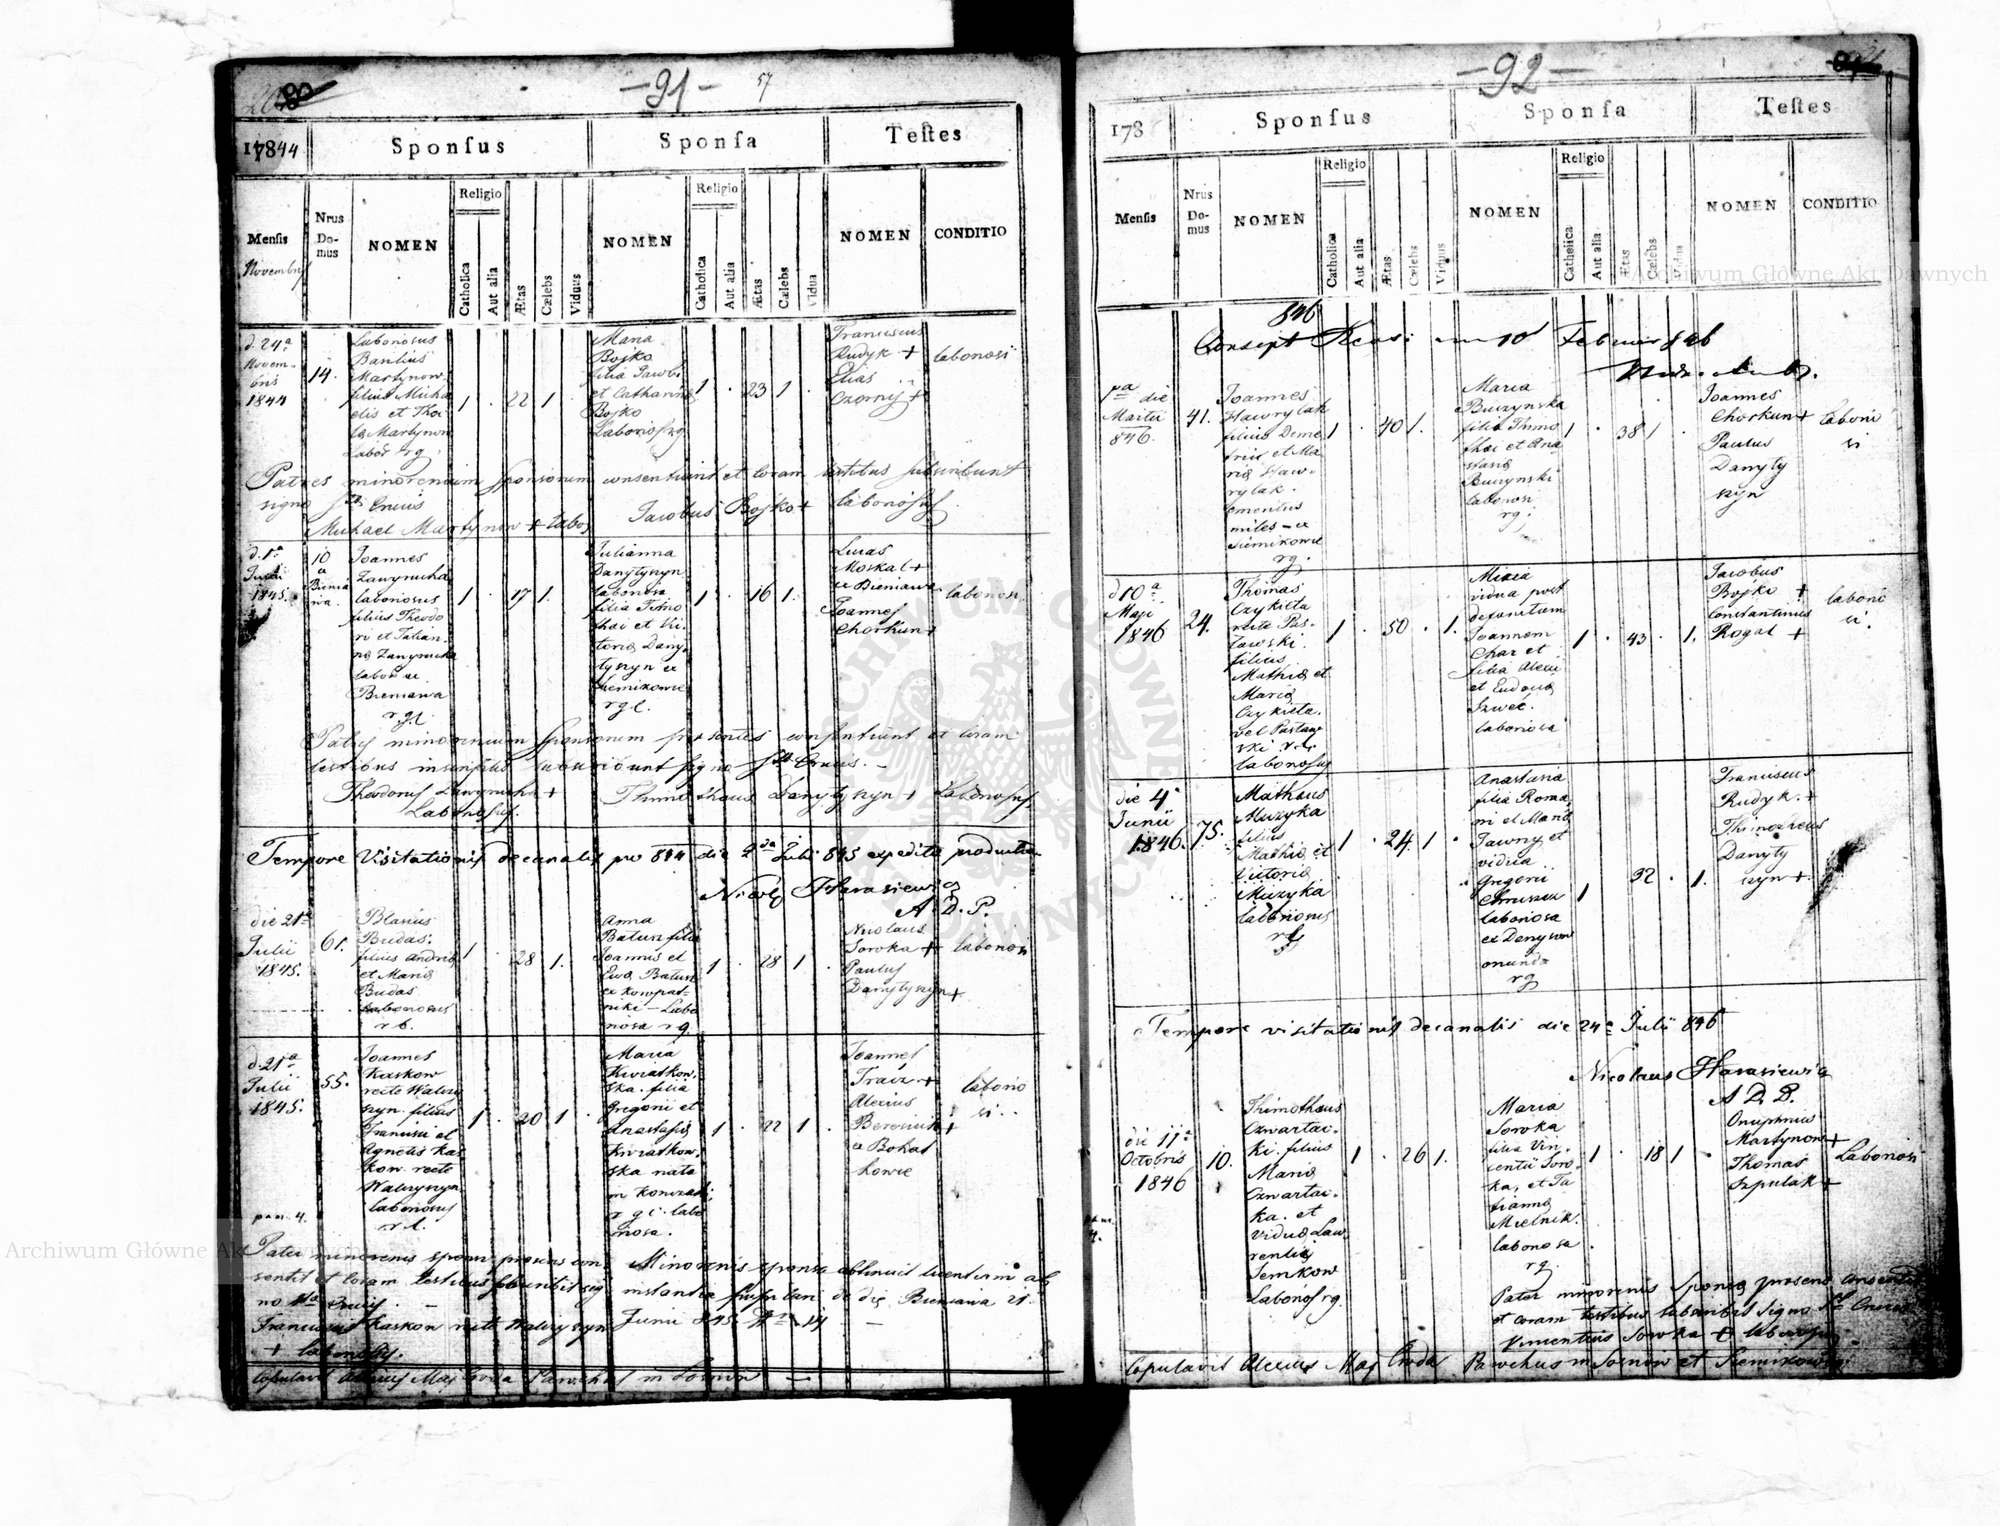 -91-
57
17844
Sponsus
Sponsa
Testes
Mensis
Novembris
Nrus Do-mus
NOMEN
Religio
Catholica
Aut alia
Ætas
Cælebs
Viduus
NOMEN
Religio
Catholica
Aut alia
Ætas
Cælebs
Vidua
NOMEN
CONDITIO
d. 24ª
Novem-
bris
1844
14.
Laboriosus
Basilius
Martynow.
filius Micha
elis et Theo
Martynow
Labor r g.
1 . 22 1
Maria
Bojko
filia Jacobi
et Catharina
Bojko
1 . 23 1
Franciscus
Rudyk +
Elias
Czornij +
laboriosi
Patres minorennium sponsorum consentiunt et coram testibus subscribunt
signo Crucis
Michael Martynow + labos
Jacobus Bojko + laboriosus
d. 1ª
1845.
10
ex
Bienia
wa.
Joannes
Zawyrucha
laboriosus
filius Theodo
ri et Tatian
na Zawyrucha
labor ex
Bieniawa
r.g.l.
1 . 17 1.
Julianna
Danytyszyn
laboriosa
filia Timo
thei et Vic
toria Dany
tyszyn ex
Siemikowce
r g l.
1 . 16 1.
Lucas
Moskal +
ex Bieniawa
Joannes
Chorkun +
laboriosi
Patres minorennium sponsorum presentes consentiunt et coram
testibus inscriptis subscribunt signo Crucis. -
Theodorus Zawyrucha +
Laboriosus.
Thimotheus Danytyszyn + Laboriosus
Tempore Visitationis decanalis pro 844 die 2da Julii 845 expedita productum
Nicol Harasiewicz
A. D. P.
die 21ª
Julii
1845.
61.
Blasius
Budas.
filius Andrea
et Maria
Budas
Laboriosus
r l.
1 . 28 1.
Anna
Batusz filia
Joannis et
Eva Batusz
niki - Labo
riosa r g.
1 . 28 1 .
Nicolaus
Soroka +
Paulus
Danytyszyn +
laboriosi
d. 21ª
Julii
1845.
55.
Joannes
Kaskow
recte Walczy
szyn. filius
Francisci et
Agnetis Kas
kow recte
Walczyszyn
laboriosus
r l.
1 . 20 1 .
Maria
Kwiatkow.
ska. filia
Gregorii et
Anastasia
Kwiatkow.
ska nata
r g l. labo
riosa.
1 . 22 1 .
Joannes
Alexius
ex Bohat
kowce
laborio
si . .
Pater minorenis sponsi presens con
sentit et coram testibus subscribit sig
no Sta Crucis. -
Franciscus Kaskow recte Walczyszyn
+ laboriosus.
Minorenis sponsa obtinuit licentiam ab
instantia de dto Bieniawa 21.
Junii 845. -
Copulavit Alexius Maj Croda Parochus in Sosnów -
-92-
178
Sponsus
Sponsa
Testes
Mensis
Nrus Do-mus
NOMEN
Religio
Catholica
Aut alia
Ætas
Cælebs
Viduus
NOMEN
Religio
Catholica
Aut alia
Ætas
Cælebs
Vidua
NOMEN
CONDITIO
846
10 Februar 846
1ª die
Martii
846.
41.
Joannes
Hawrylak
filius Deme
trii et Ma
ria Haw-
rylak.
emeritus
miles - ex
Siemikowce
r g.
1 . 40 1.
Maria
Buczynska
filia Thimo
thei et Ana
stasia
Buczynski
laboriosi
r g.
1 . 38 1 .
Joannes
Chorkun +
Paulus
Danyty
szyn
laborio
si
d 10ª
Maji
1846
24.
Thomas
Czykieta
recte Pas-
tawski.
filius
Mathia et
Maria
Czykieta.
vel Pastaw
ski r.l.
laboriosus
1 . 50 . 1.
Maria
vidua post
defunctum
Joannem
Char et
filia Alexii
et Eudocia
Szwec.
laboriosa
1 . 43 . 1.
Jacobus
Bojko +
Constantinus
Rogal +
laborio
si.
die 4ª
Junii
1846.
75.
Mathaus
Muzyka
filius
Mathia et
Victoria
Muzyka
laboriosus
r g
1 . 24 1 .
Anastasia
filia Roma
ni et Maria
Jawny et
vidua
Gregorii
laboriosa
ex Denysow
oriunda
r g
1 32 . 1.
Franciscus
Rudyk. +
Thimotheus
Danyty
szyn +.
Tempore visitationis decanalis die 24ª Julii 846
Nicolaus Harasiewicz
A D. P.
die 11ª
Octobris
1846
10.
Thimothaus
Czwartac-
ki. filius
Maria
Czwartac-
ka. et
vidua Law
rentia
Semkow
Labórios r g.
1 . 26 1.
Maria
Soroka
filia Vin-
centii Soro-
ka, et Ta
tianna
Mielnik.
laboriosa
r g.
1 . 18 1 .
Onuphrius
Martynow +
Thomas
Szpulak +
Laboriosi
Pater minorenis sponsa presens consentit
et coram testibus subscribit signo Sta Crucis
Vincentius Soroka + laboriosus.
Copulavit Alexius Maj Croda Parochus in Sosnów et Siemikowce
Archiwum Główne Akt Dawnych
Archiwum Główne Akt Dawnych
ARCHIWUM GŁÓWNE AKT DAWNYCH